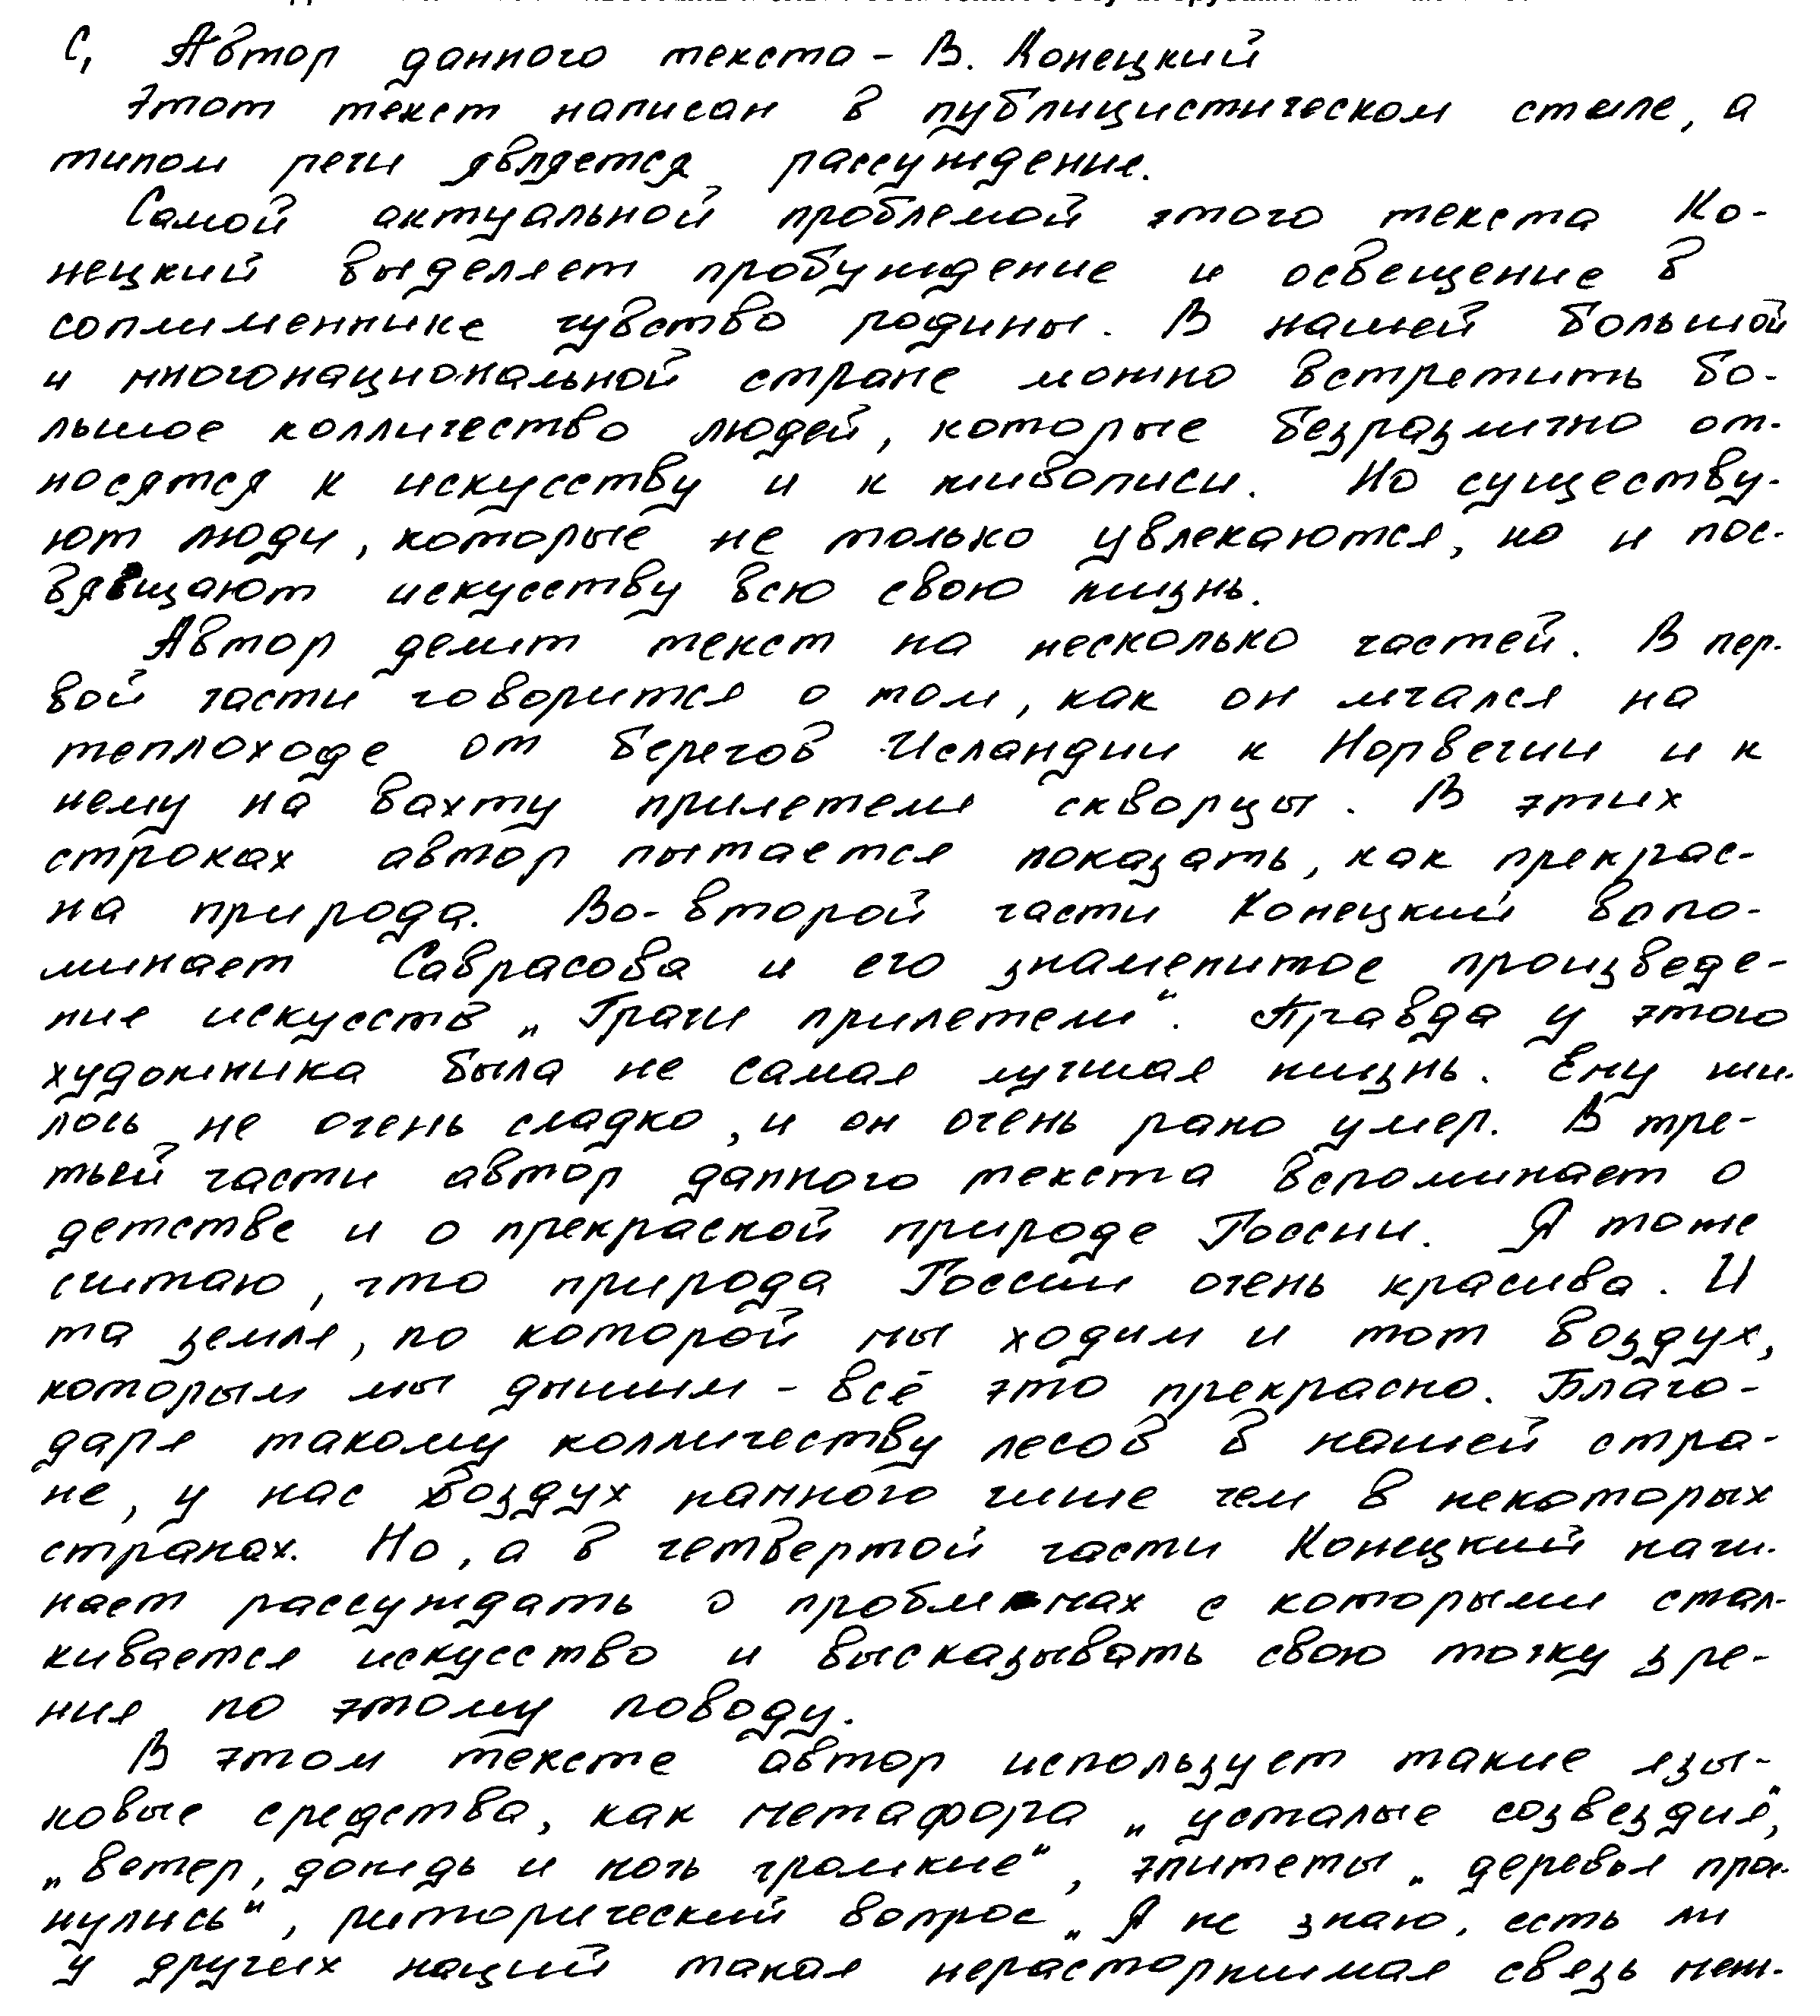 С1 Автор данного текста – В. Конецкий
Этот текст написан в публицистическом стиле, а
типом речи является рассуждение.
Самой актуальной проблемой этого текста Ко-
нецкий выделяет пробуждение и освещение в
соплименнике чувство родины. В нашей большой
и многонациональной стране можно встретить бо-
льшое колличество людей, которые безразлично от-
носятся к искусству и к живописи. Но существу-
ют люди, которые не только увлекаются, но и пос-
вящают искусству всю свою жизнь.
Автор делит текст на несколько частей. В пер-
вой части говорится о том, как он мчался на
теплоходе от берегов Исландии к Норвегии и к
нему на вахту прилетели скворцы. В этих
строках автор пытается показать, как прекрас-
на природа. Во-второй части Конецкий вспо-
минает Саврасова и его знаменитое произведе-
ние искусств „Грачи прилетели“. Правда у этого
художника была не самая лучшая жизнь. Ему жи-
лось не очень сладко, и он очень рано умер. В тре-
тьей части автор данного текста вспоминает о
детстве и о прекраской природе России. Я тоже
считаю, что природа России очень красива. И
та земля, по которой мы ходим и тот воздух,
которым мы дышим – всё это прекрасно. Благо-
даря такому колличеству лесов в нашей стра-
не, у нас воздух намного чище чем в некоторых
странах. Но, а в четвертой части Конецкий начи-
нает рассуждать о проблемах с которыми стал-
кивается искусство и высказывать свою точку зре-
ния по этому поводу.
В этом тексте автор использует такие язы-
ковые средства, как метафора „усталые созвездия“,
„ветер, дождь и ночь громкие“, эпитеты „деревья прос-
нулись“, риторический вопрос „Я не знаю, есть ли
у других наций такая нерасторжимая связь меж-